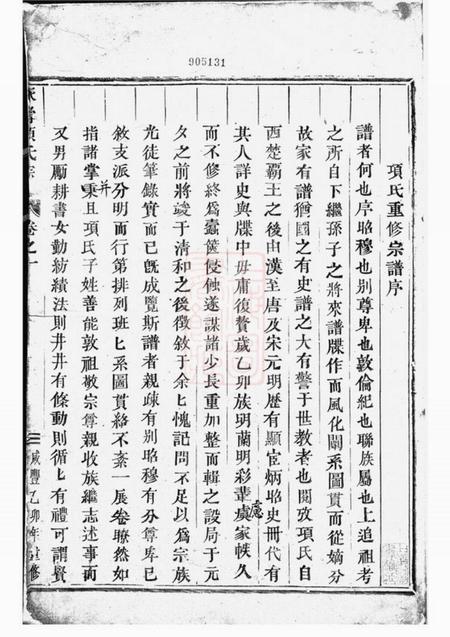 905131
項氏重修宗譜序
譜者何也序昭穆也别尊卑也敦倫紀也聯族屬也上追祖考
之所自下繼孫子之將來譜牒作而風化關系圖貫而從嫡分
故家有譜猶國之有史譜之大有警于世教者也閱攷項氏自
西楚覇王之後由漢至唐及宋元明歴有顯宦炳昭史冊代有
其人詳史與牒中毋庸復贅歲乙卯族玥蘭明彩輩虞家帙久
處
而不修終爲蠧篋侵蝕遂謀諸少長重加整而輯之設局于元
夕之前將竣于清和之後徴敘于余匕愧記問不足以爲宗族
光徒筆錄實而已旣成覽斯譜者親疎有别昭穆有分尊卑已
敘支派分明而行第排列班匕系圖貫絡不紊一展卷瞭然如
指諸掌秉且項氏子姓善能敦祖敬宗尊親收族繼志述事而
并
又男勵耕書女勤紡績法則井井有條動則循匕有禮可謂賢
項氏宗
卷之一
咸豐乙卯年重修